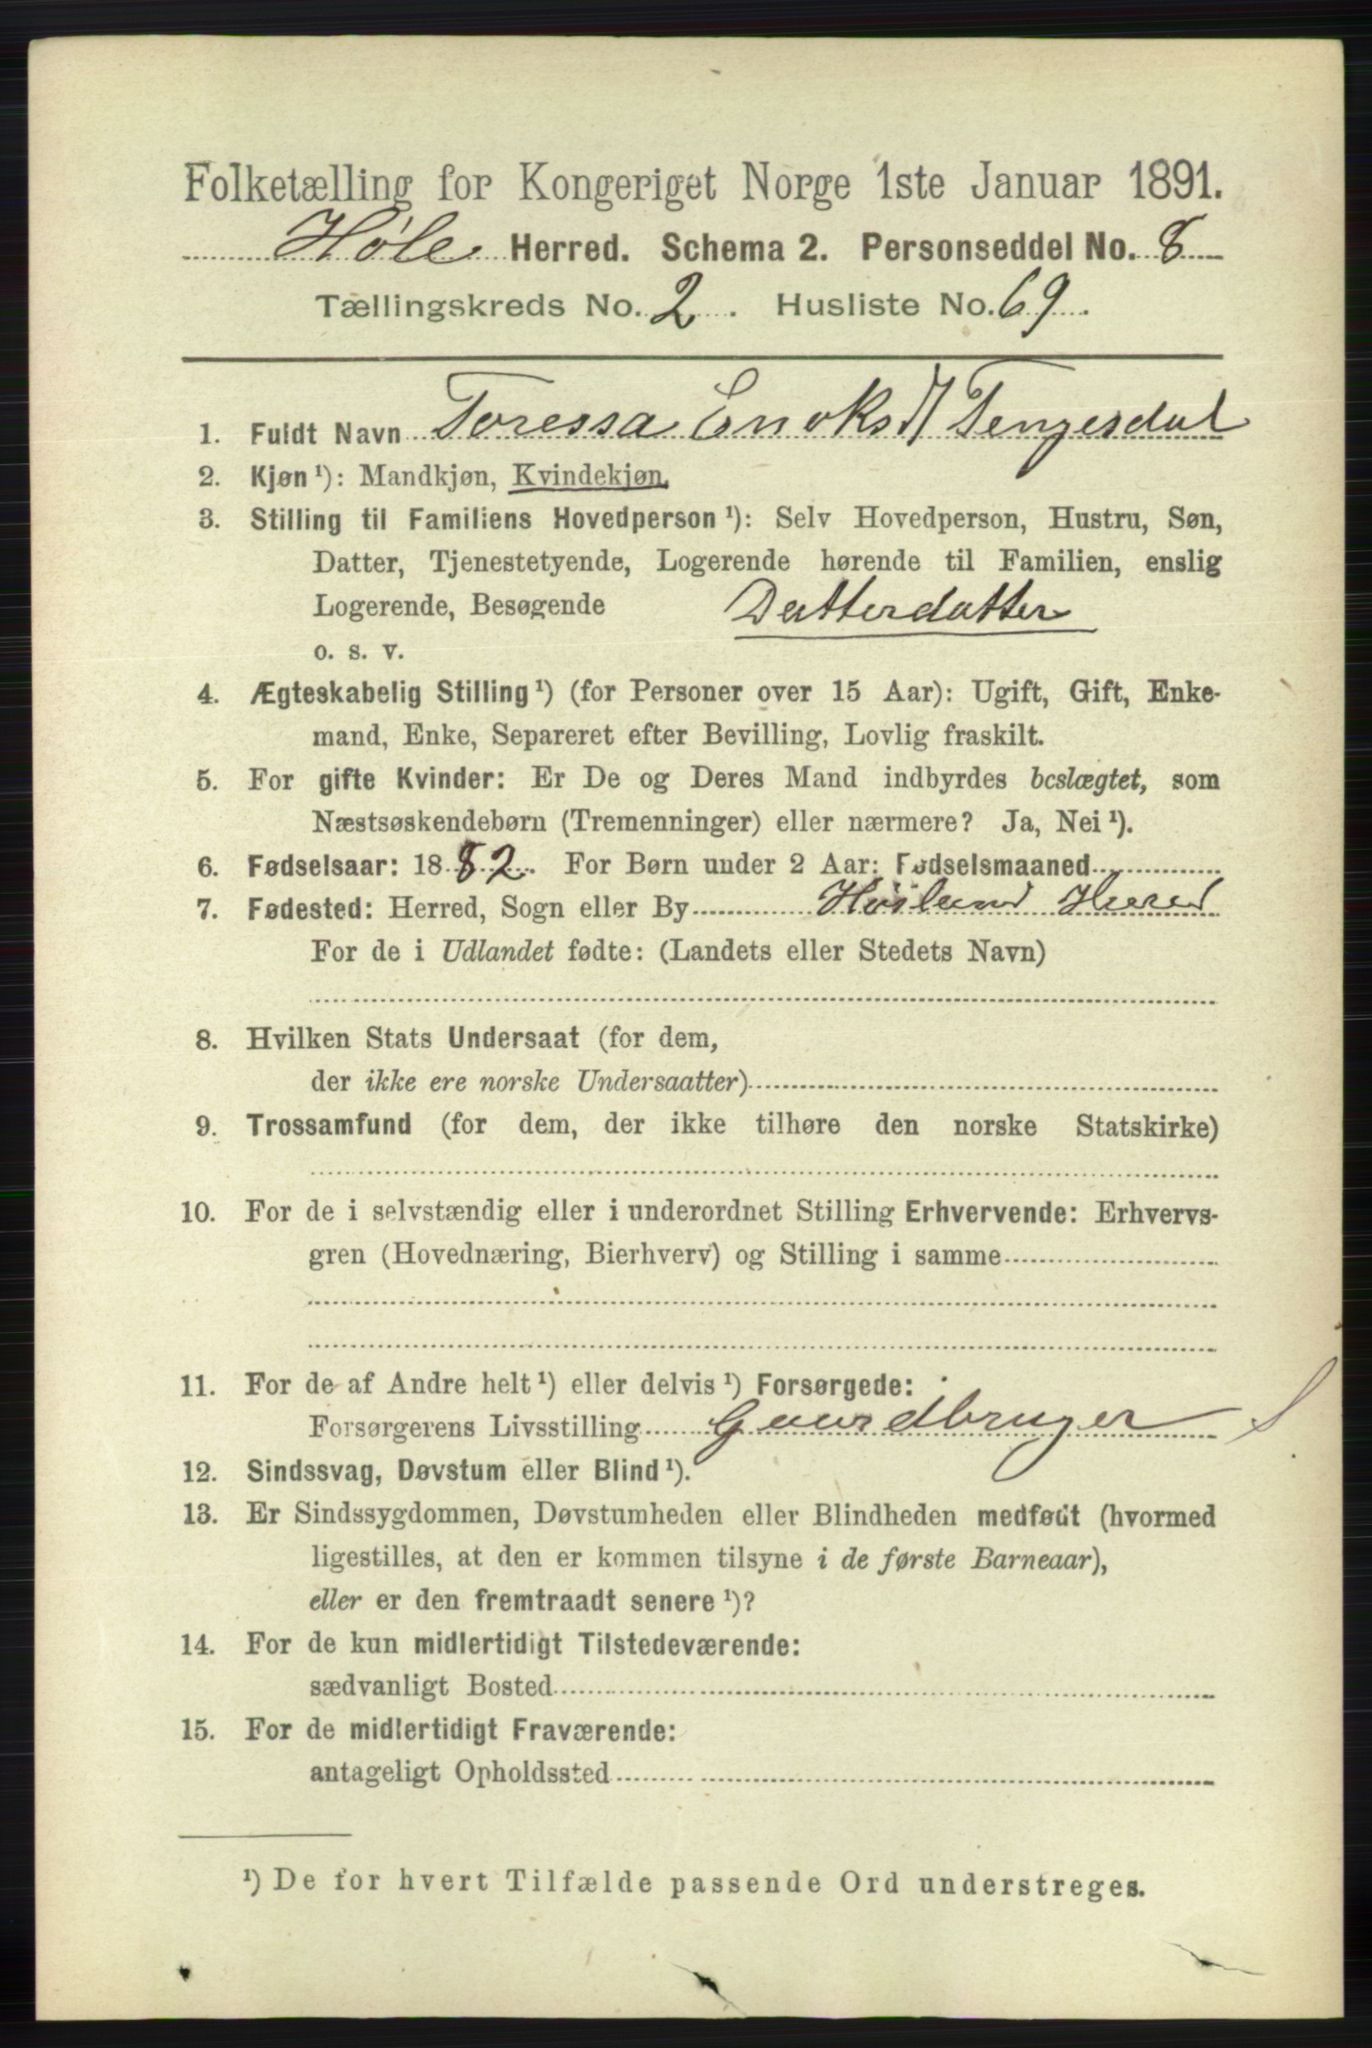 Folketælling for Kongeriget Norge 1ste Januar 1891.
Høle Herred. Schema 2. Personseddel No. 8
Tællingskreds No. 2. Husliste No. 69.
1. Fuldt Navn Toressa Enoks D/ Tengesdal
2. Kjøn ¹): Mandkjøn, Kvindekjøn.
3. Stilling til Familiens Hovedperson ¹): Selv Hovedperson, Hustru, Søn,
Datter, Tjenestetyende, Logerende hørende til Familien, enslig
Logerende, Besøgende Datterdatter
o. s. v.
4. Ægteskabelig Stilling ¹) (for Personer over 15 Aar): Ugift, Gift, Enke-
mand, Enke, Separeret efter Bevilling, Lovlig fraskilt.
5. For gifte Kvinder: Er De og Deres Mand indbyrdes beslægtet, som
Næstsøskendebørn (Tremenninger) eller nærmere? Ja, Nei ¹).
6. Fødselsaar: 1882. For Børn under 2 Aar: Fødselsmaaned
7. Fødested: Herred, Sogn eller By Høiland Herred
For de i Udlandet fødte: (Landets eller Stedets Navn)
8. Hvilken Stats Undersaat (for dem,
der ikke ere norske Undersaatter)
9. Trossamfund (for dem, der ikke tilhøre den norske Statskirke)
10. For de i selvstændig eller i underordnet Stilling Erhvervende: Erhvervs-
gren (Hovednæring, Bierhverv) og Stilling i samme
11. For de af Andre helt ¹) eller delvis ¹) Forsørgede:
Forsørgerens Livsstilling Gaardbruger S
12. Sindssvag, Døvstum eller Blind ¹).
13. Er Sindssygdommen, Døvstumheden eller Blindheden medfødt (hvormed
ligestilles, at den er kommen tilsyne i de første Barneaar),
eller er den fremtraadt senere ¹)?
14. For de kun midlertidigt Tilstedeværende:
sædvanligt Bosted
15. For de midlertidigt Fraværende:
antageligt Opholdssted
¹) De for hvert Tilfælde passende Ord understreges.